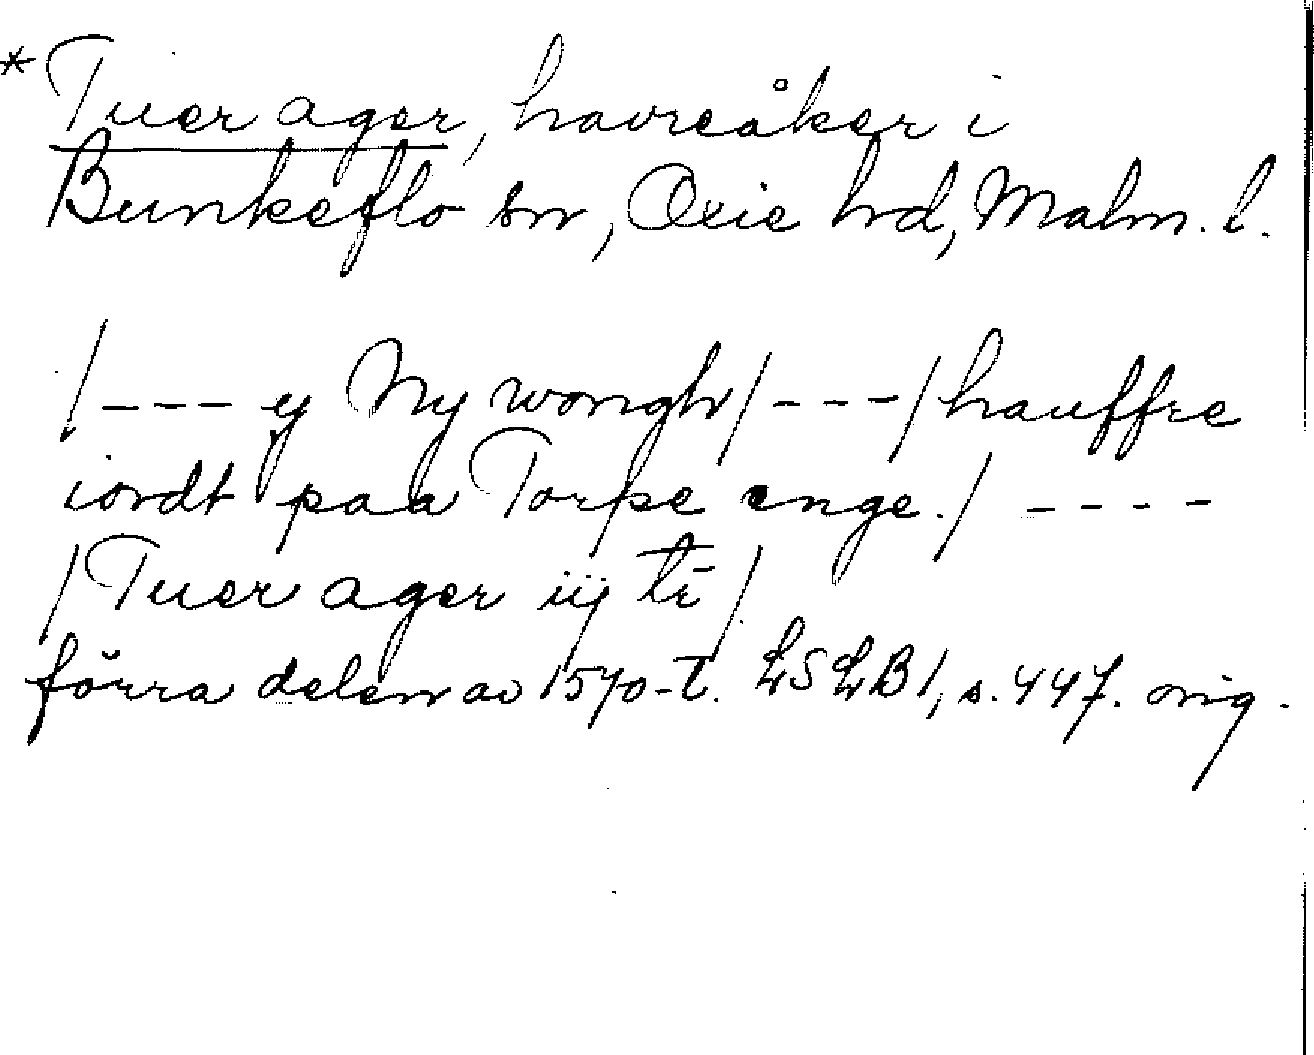 *Tuer ager, havreåker i
Bunkeflo sn, Oxie hd, Malm. l.
/--- y Ny wongh/---/hauffre
iordt paa Torpe enge./ ----
/Tuer ager iij tī/
förra delen av 1570-t. LSLB1, s. 447. orig.